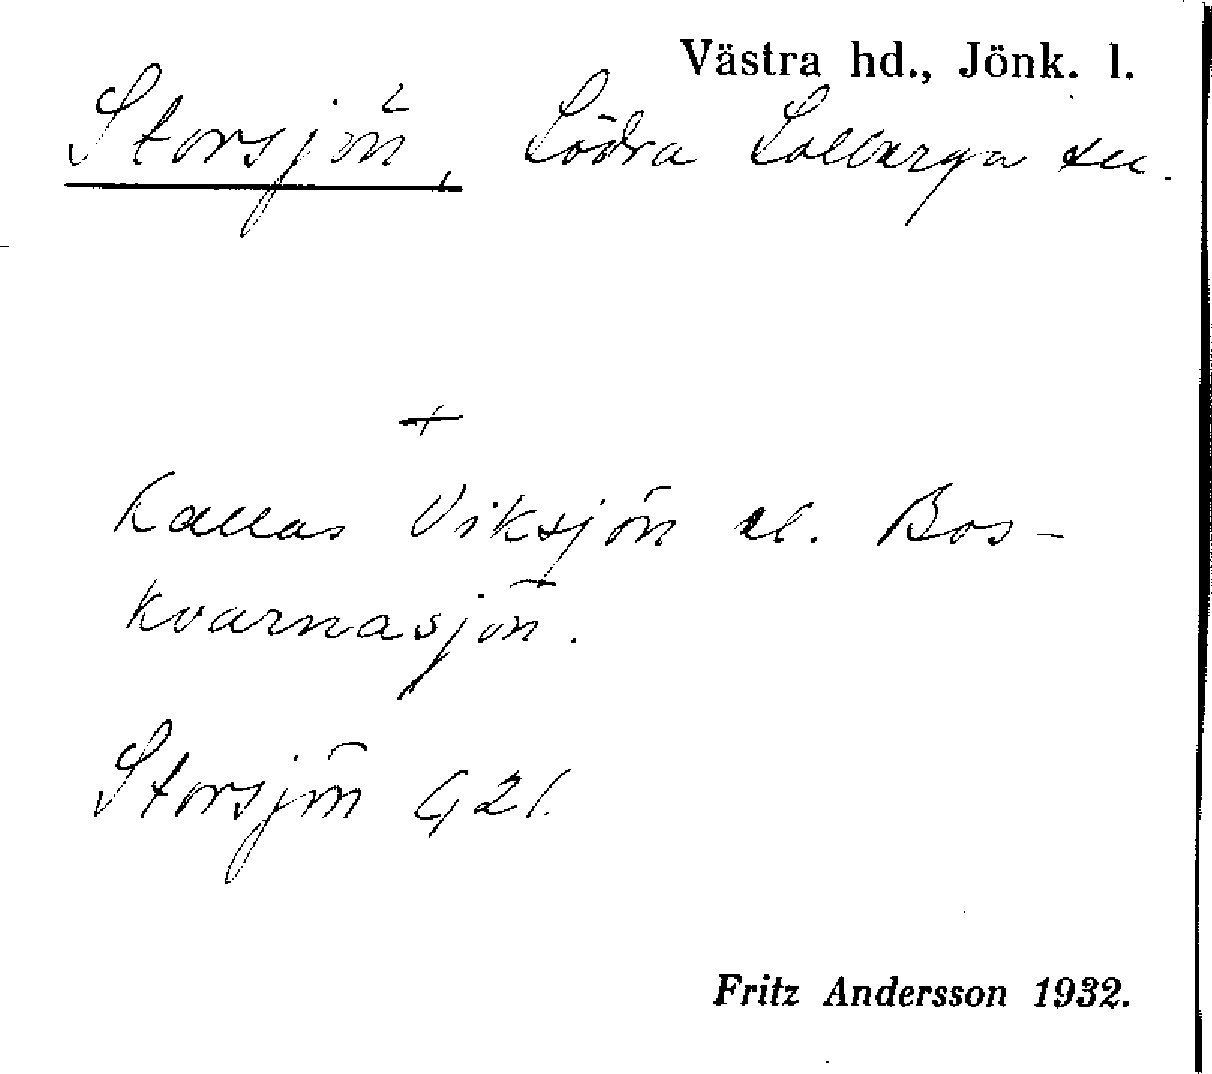 Västra hd., Jönk. l.
Storsjön, Södra Solberga sn.
+
Kallas Viksjön el. Bos-
kvarnasjön.
Storsjön G 21.
Fritz Andersson 1932.